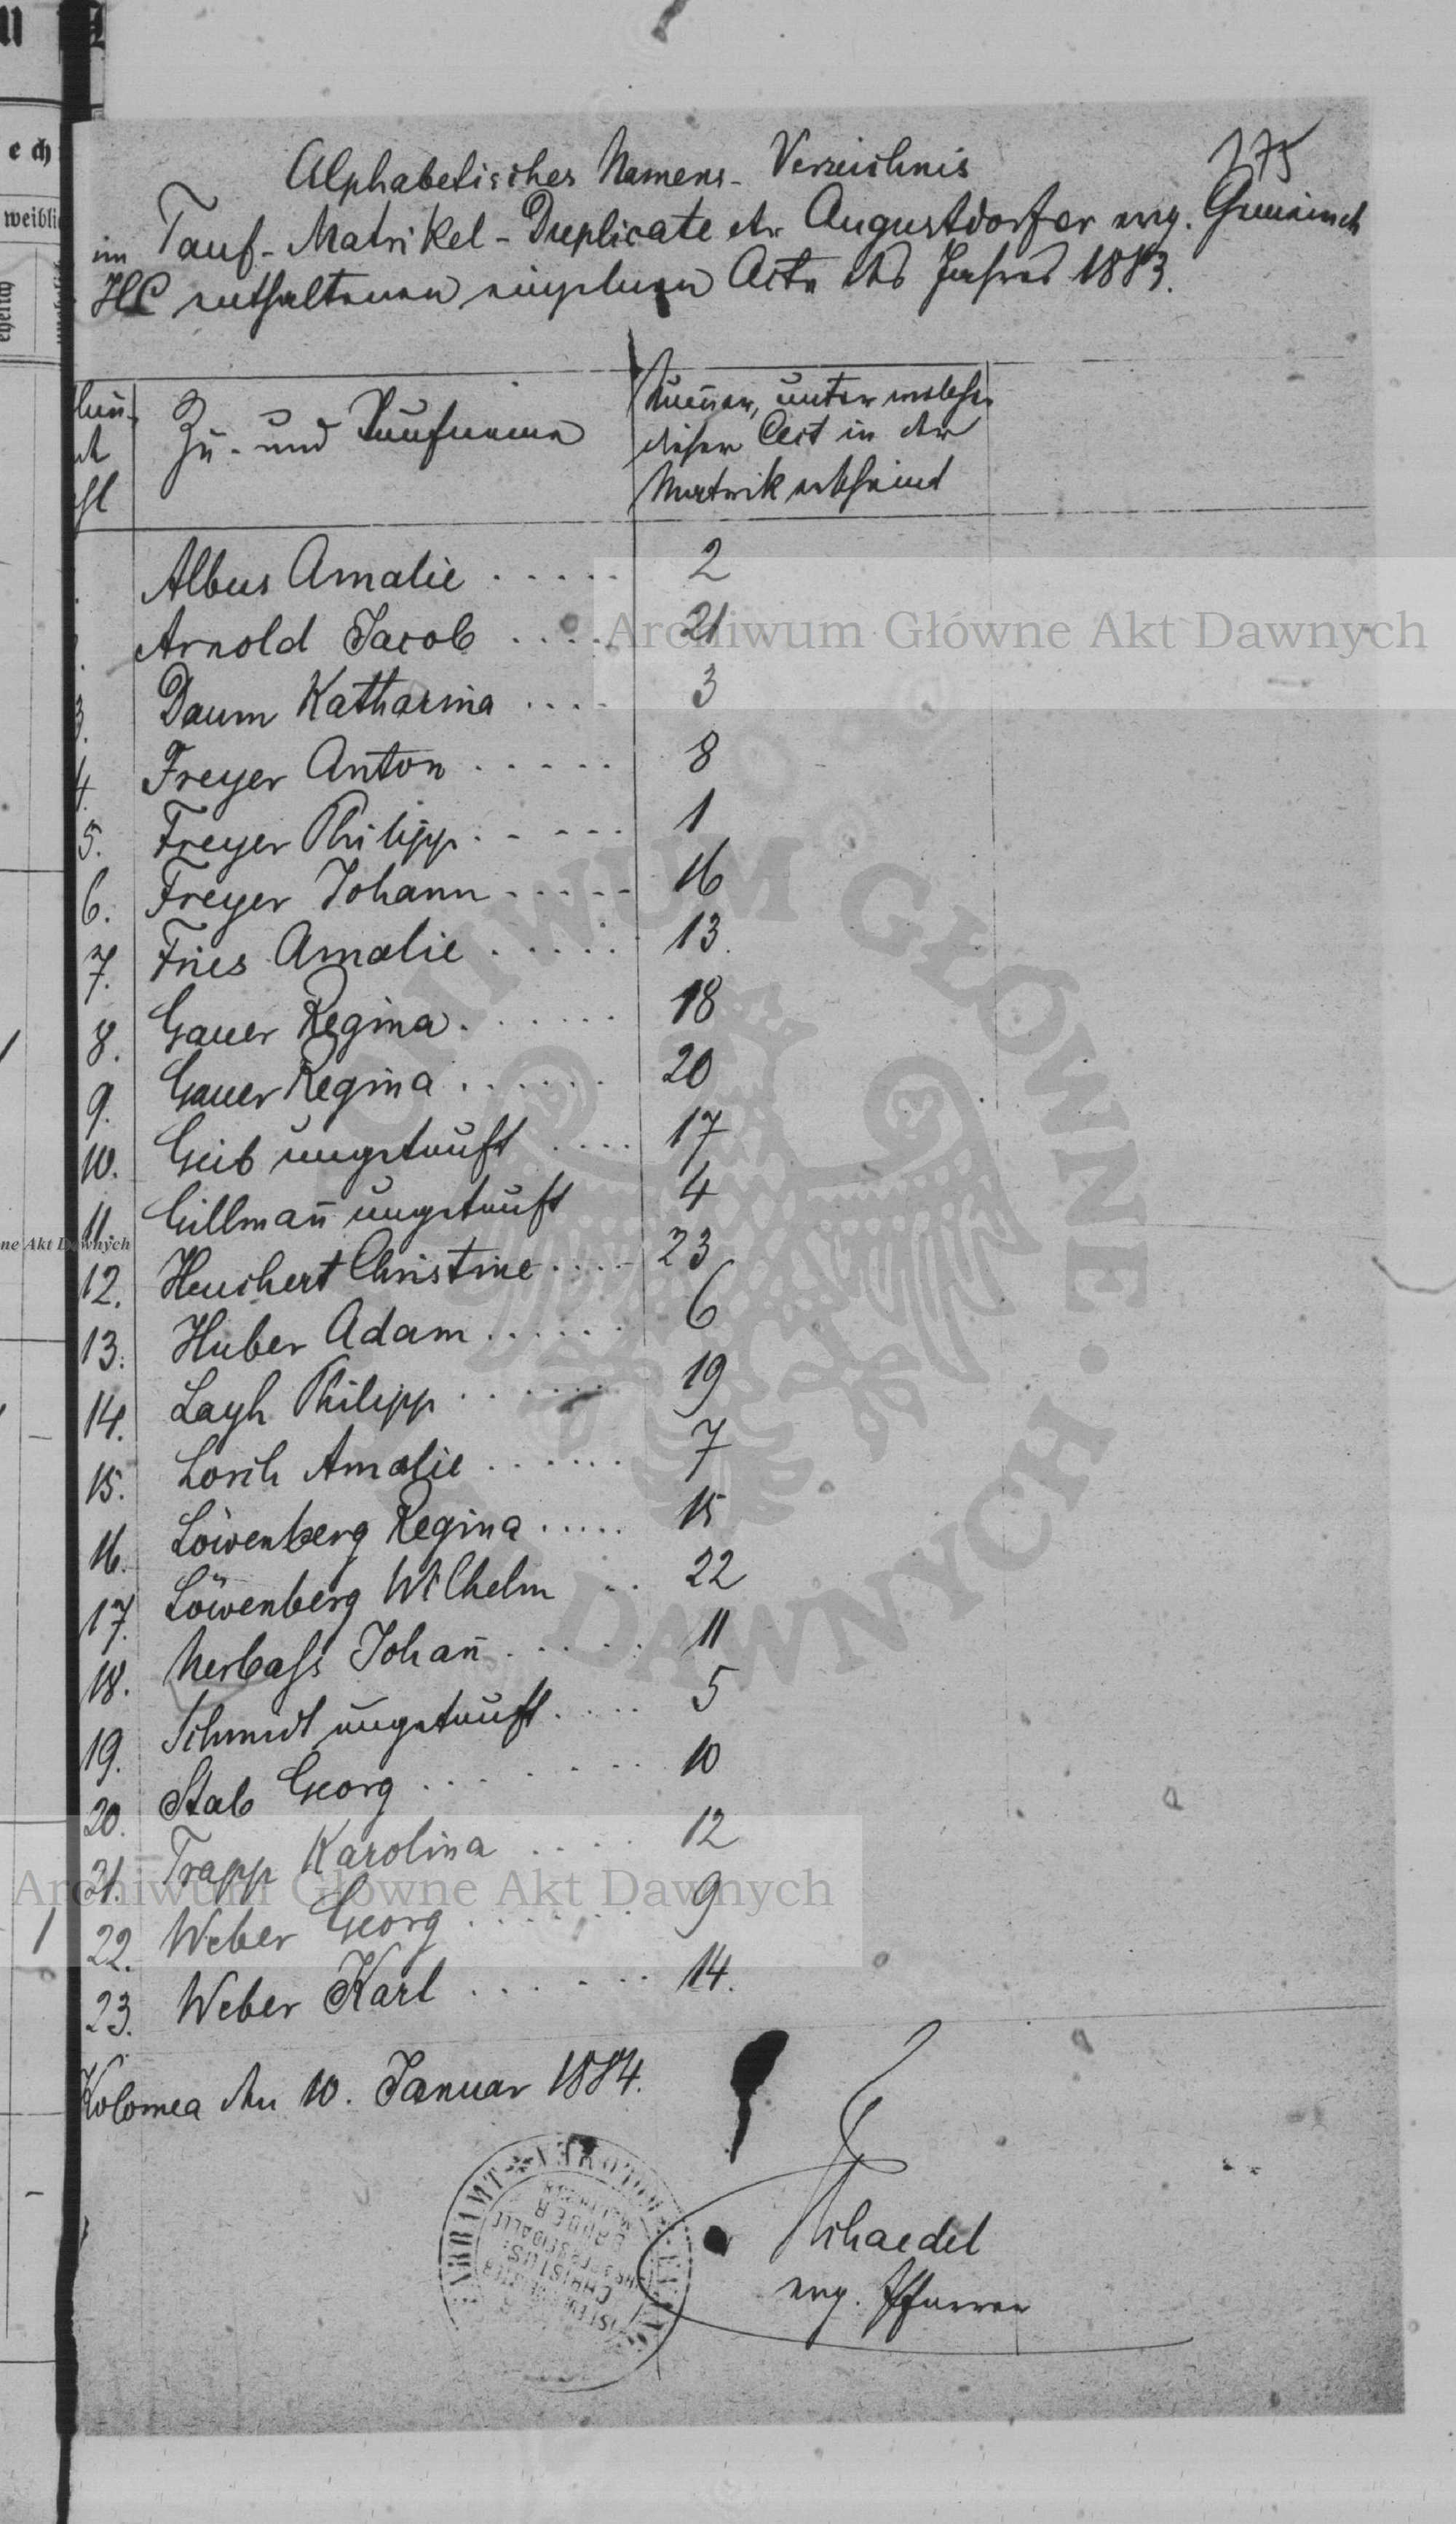 ech
weibli
275
Alphabetisches Namens-Verzeichnis
im Tauf-Matrikel-Duplicate der Augustdorfer evg. Gemeinde
HC enthaltenen einzelnen Acte des Jahres 1883.
Zu- und Taufname
Num̄er, unter welcher
dieser Act in der
Matrik erscheint
Albus Amalie ..... 2
Arnold Jacob .... 21
3. Daum Katharina .... 3
4. Freyer Anton ..... 8
5. Freyer Philipp ..... 1
6. Freyer Johann ..... 16
7. Fries Amalie ..... 13.
8. Gauer Regina ...... 18
9. Gauer Regina ...... 20
10. Geib ungetauft .... 17
11. Gillmañ ungetauft 4
12. Heuchert Christine .... 23
13. Huber Adam ...... 6
14. Layh Philipp ...... 19
15. Lorch Amalie ...... 7
16. Löwenberg Regina ..... 15
17. Löwenberg Wilhelm .. 22
18. Nerbaſs Johañ ..... 11
19. Schmidt ungetauft .... 5
20. Stab Georg ....... 10
21. Trapp Karolina .... 12
22. Weber Georg ...... 9
23. Weber Karl ...... 14.
Kolomea den 10. Januar 1884.
Schaedel
evg. Pfarrer
Archiwum Główne Akt Dawnych
Archiwum Główne Akt Dawnych
ne Akt Dawnych
ARCHIWUM GŁÓWNE AKT DAWNYCH